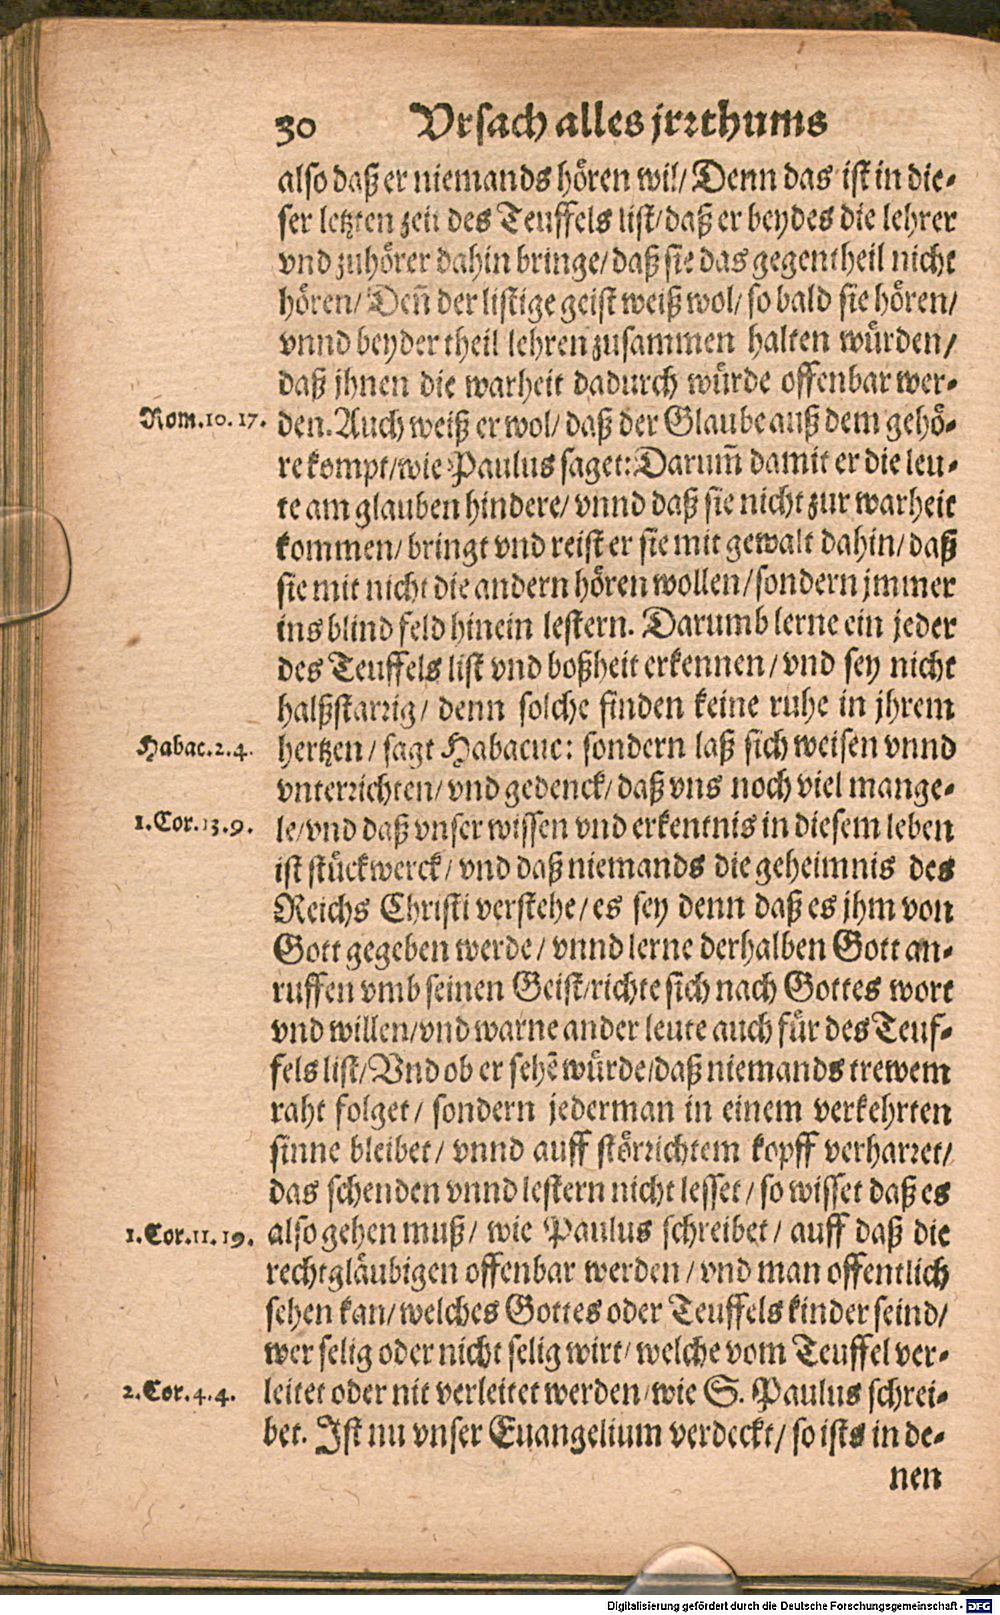 30 Vrsach alles jrrthums
also daß er niemands hören wil/ Denn das ist in die-
ser letzten zeit des Teuffels list/ daß er beydes die lehrer
vnd zuhörer dahin bringe/ daß sie das gegentheil nicht
hören/ Deñ der listige geist weiß wol/ so bald sie hören/
vnnd beyder theil lehren zusammen halten würden/
daß jhnen die warheit dadurch würde offenbar wer-
Rom.10.17. den. Auch weiß er wol/ daß der Glaube auß dem gehö-
re kompt/ wie Paulus saget: Darum̃ damit er die leu-
te am glauben hindere/ vnnd daß sie nicht zur warheit
kommen/ bringt vnd reist er sie mit gewalt dahin/ daß
sie mit nicht die andern hören wollen/ sondern jmmer
ins blind feld hinein lestern. Darumb lerne ein jeder
des Teuffels list vnd boßheit erkennen/ vnd sey nicht
halßstarrig/ denn solche finden keine ruhe in jhrem
Habac.2.4. hertzen/ sagt Habacuc: sondern laß sich weisen vnnd
vnterrichten/ vnd gedenck/ daß vns noch viel mange-
1.Cor.13.9. le/ vnd daß vnser wissen vnd erkentnis in diesem leben
ist stückwerck/ vnd daß niemands die geheimnis des
Reichs Christi verstehe/ es sey denn daß es jhm von
Gott gegeben werde/ vnnd lerne derhalben Gott an-
ruffen vmb seinen Geist/ richte sich nach Gottes wort
vnd willen/ vnd warne ander leute auch für des Teuf-
fels list/ Vnd ob er sehẽ würde/ daß niemands trewem
raht folget/ sondern jederman in einem verkehrten
sinne bleibet/ vnnd auff störrichtem kopff verharret/
das schenden vnnd lestern nicht lesset/ so wisset daß es
1.Cor.11.19. also gehen muß/ wie Paulus schreibet/ auff daß die
rechtgläubigen offenbar werden/ vnd man offentlich
sehen kan/ welches Gottes oder Teuffels kinder seind/
wer selig oder nicht selig wirt/ welche vom Teuffel ver-
2.Cor.4.4. leitet oder nit verleitet werden/ wie S. Paulus schrei-
bet. Ist nu vnser Euangelium verdeckt/ so ists in de-
nen
Digitalisierung gefördert durch die Deutsche Forschungsgemeinschaft - DFG